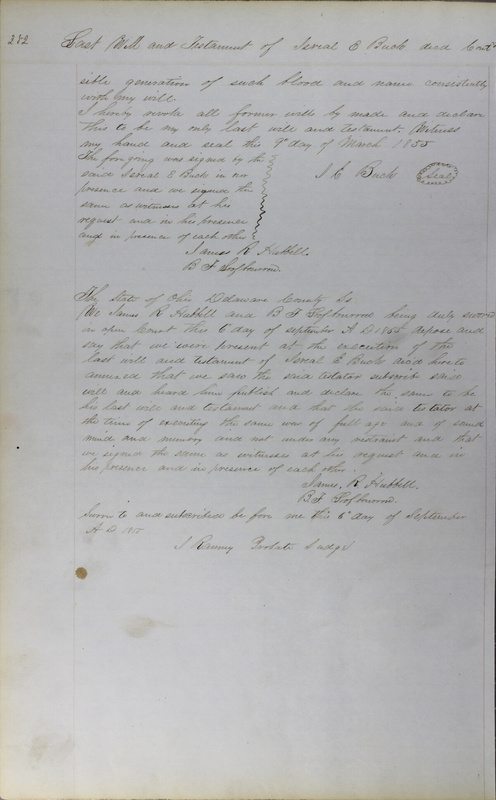 212 Last Will and Testament of Isreal E Buck decd Cont'd
sible generation of such blood and name consistently
with my will
I hereby revoke all former wills by made and declare
this to be my only last will and testament. Witness
my hand and seal this 9th day of March 1855
The forgoing was signed by the
said Isreal E Buck in our
presence and we signed the
same as witnesses at his
request and in his presence
and in presence of each other
I E Buck Seal
James R Hubbell.
B F
The State of Ohio Delaware County Ss
We James R Hubbell and B F being duly sworn
in open Court this 6 day of september A D depose and
say that we were present at the execution of the
last will and testament of Isreal E Buck decd hereto
annexed that we saw the said testator subscrib said
will and heard him publish and declare the same to be
his last will and testament and that the said testator at
the time of executing the same was of full age and of sound
mind and memory and not under any restraint and that
we signed the same as witnesses at his request and in
his presence and in presence of each other.
James, R Hubbell.
B F
Sworn to and subscribed be fore me this 6" day of September
A D
J Ranney Probate Judge